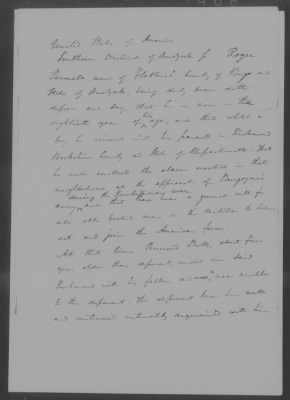 United States of America
Southern District of New York ss. Roger
now of Flatbush, County of Kings and
State of New York, being duly sworn, doth
depose and say that he is now in the
eightieth year of his age, and that whilst a
boy he resided with his parents in Richmond
Berkshire County and State of Massachusetts: that
he well recollects the alarm created in that
neighbourhood at the approach of Burgoyne's
during the Revolutionary war
army, and that there was a general call for
all able bodied men in the militia to turn
out and join the American forces.
At that time Pierson, about four
years older than deponent, resided in said
Richmond with his father, a near neighbor
to the deponent; this deponent knew him well
and continued intimately acquainted with him